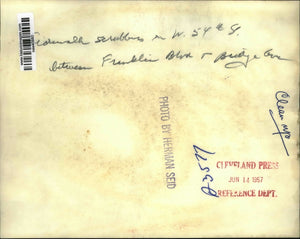 Sidewalk scrubbers on W. 54th St.
between Franklin Blvd & Bridge Ave
Clean ups
PHOTO BY HERMAN SEID
CLEVELAND PRESS
JUN 12 1957
REFERENCE DEPT.